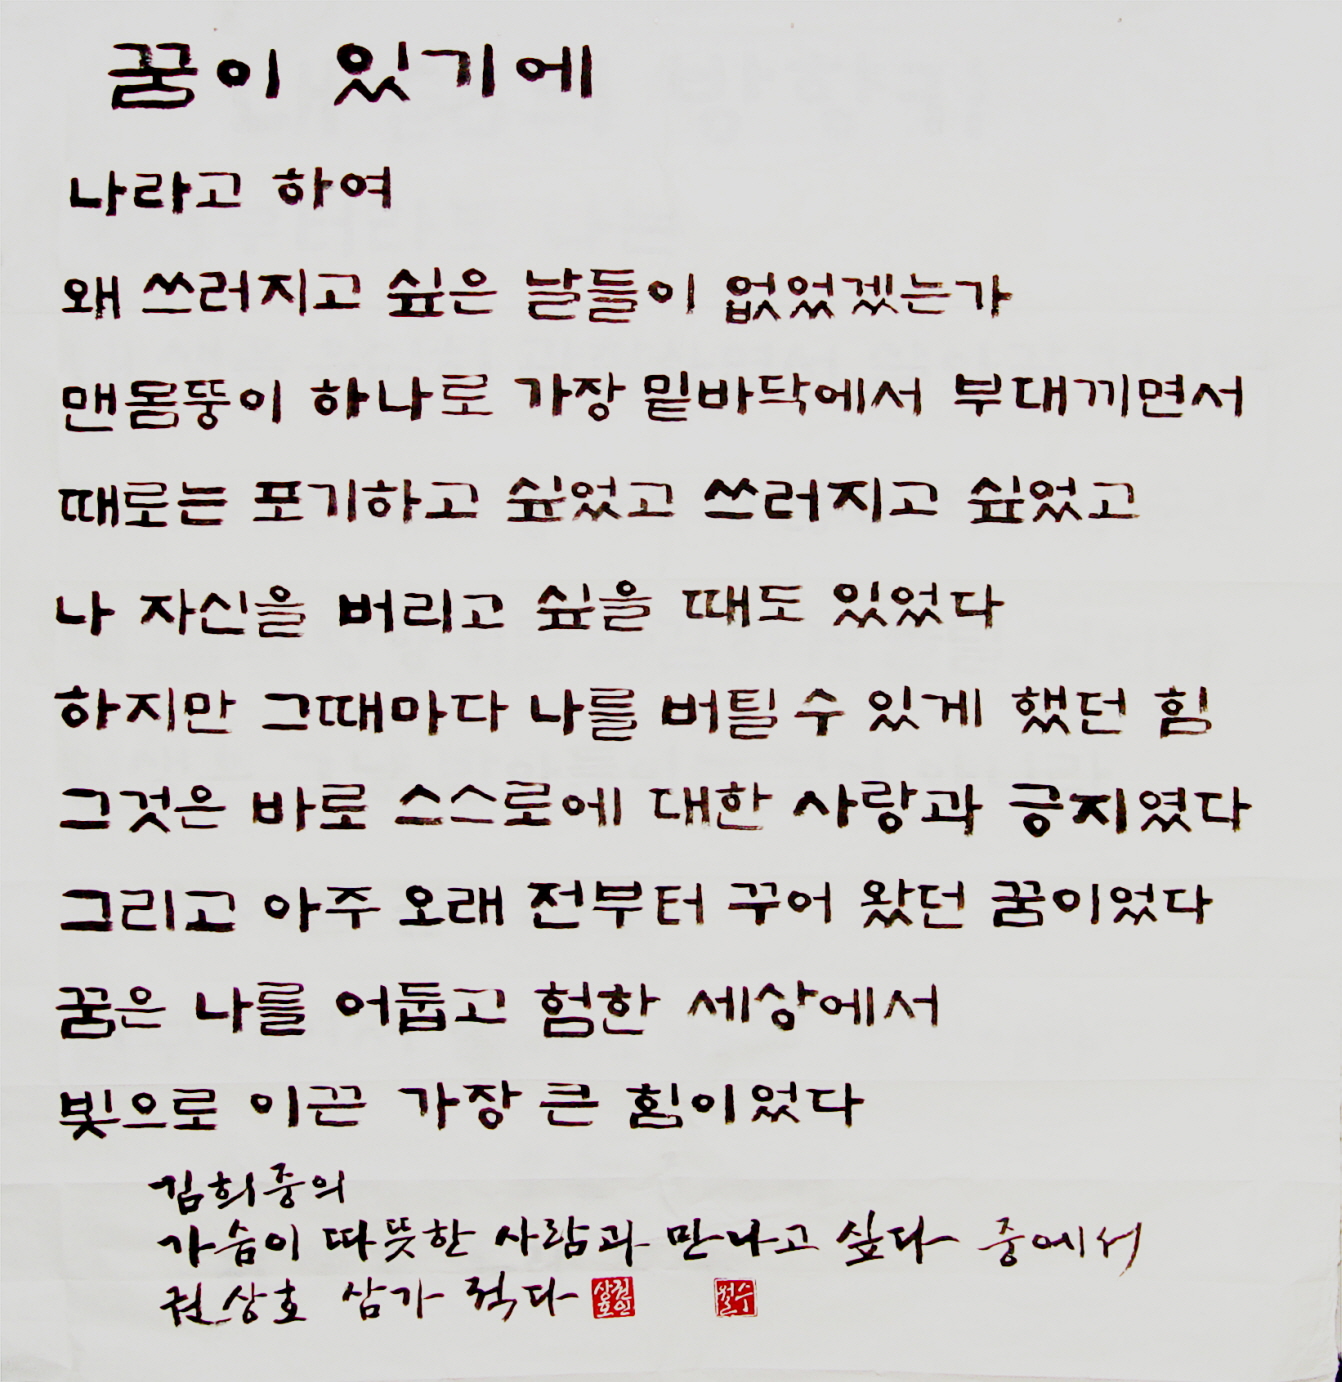 꿈이 있기에
나라고 하여
왜 쓰러지고 싶은 날들이 없었겠는가
맨몸뚱이 하나로 가장 밑바닥에서 부대끼면서
때로는 포기하고 싶었고 쓰러지고 싶었고
나 자신을 버리고 싶을 때도 있었다
하지만 그때마다 나를 버틸 수 있게 했던 힘
그것은 바로 스스로에 대한 사랑과 긍지였다
그리고 아주 오래 전부터 꾸어 왔던 꿈이었다
꿈은 나를 어둡고 험한 세상에서
빛으로 이끈 가장 큰 힘이었다
김희중의
가슴이 따뜻한 사람과 만나고 싶다 중에서
권상호 삼가 적다 권인상호 수월